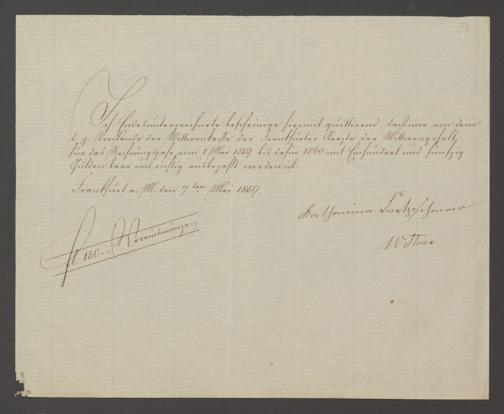 Ich Endesunterzeichnete bescheinige hiermit quittirend, daß mir von dem
z. Z. Vorstande der Wittwenkasse der Frankfurter Aerzte der Wittwengehalt
für das Rechnungsjahr vom 1 Mai 1859 bis dahin 1860 mit Einhundert und fünfzig
Gulden baar und richtig ausbezahlt worden ist.
Frankfurt a. M. den 7ten Mai 1860.
Katharina
Wittwe
fl. 150